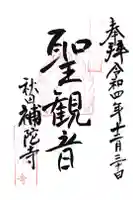 奉拝 令和四年十二月三十日
聖観音
秋田 補陀寺